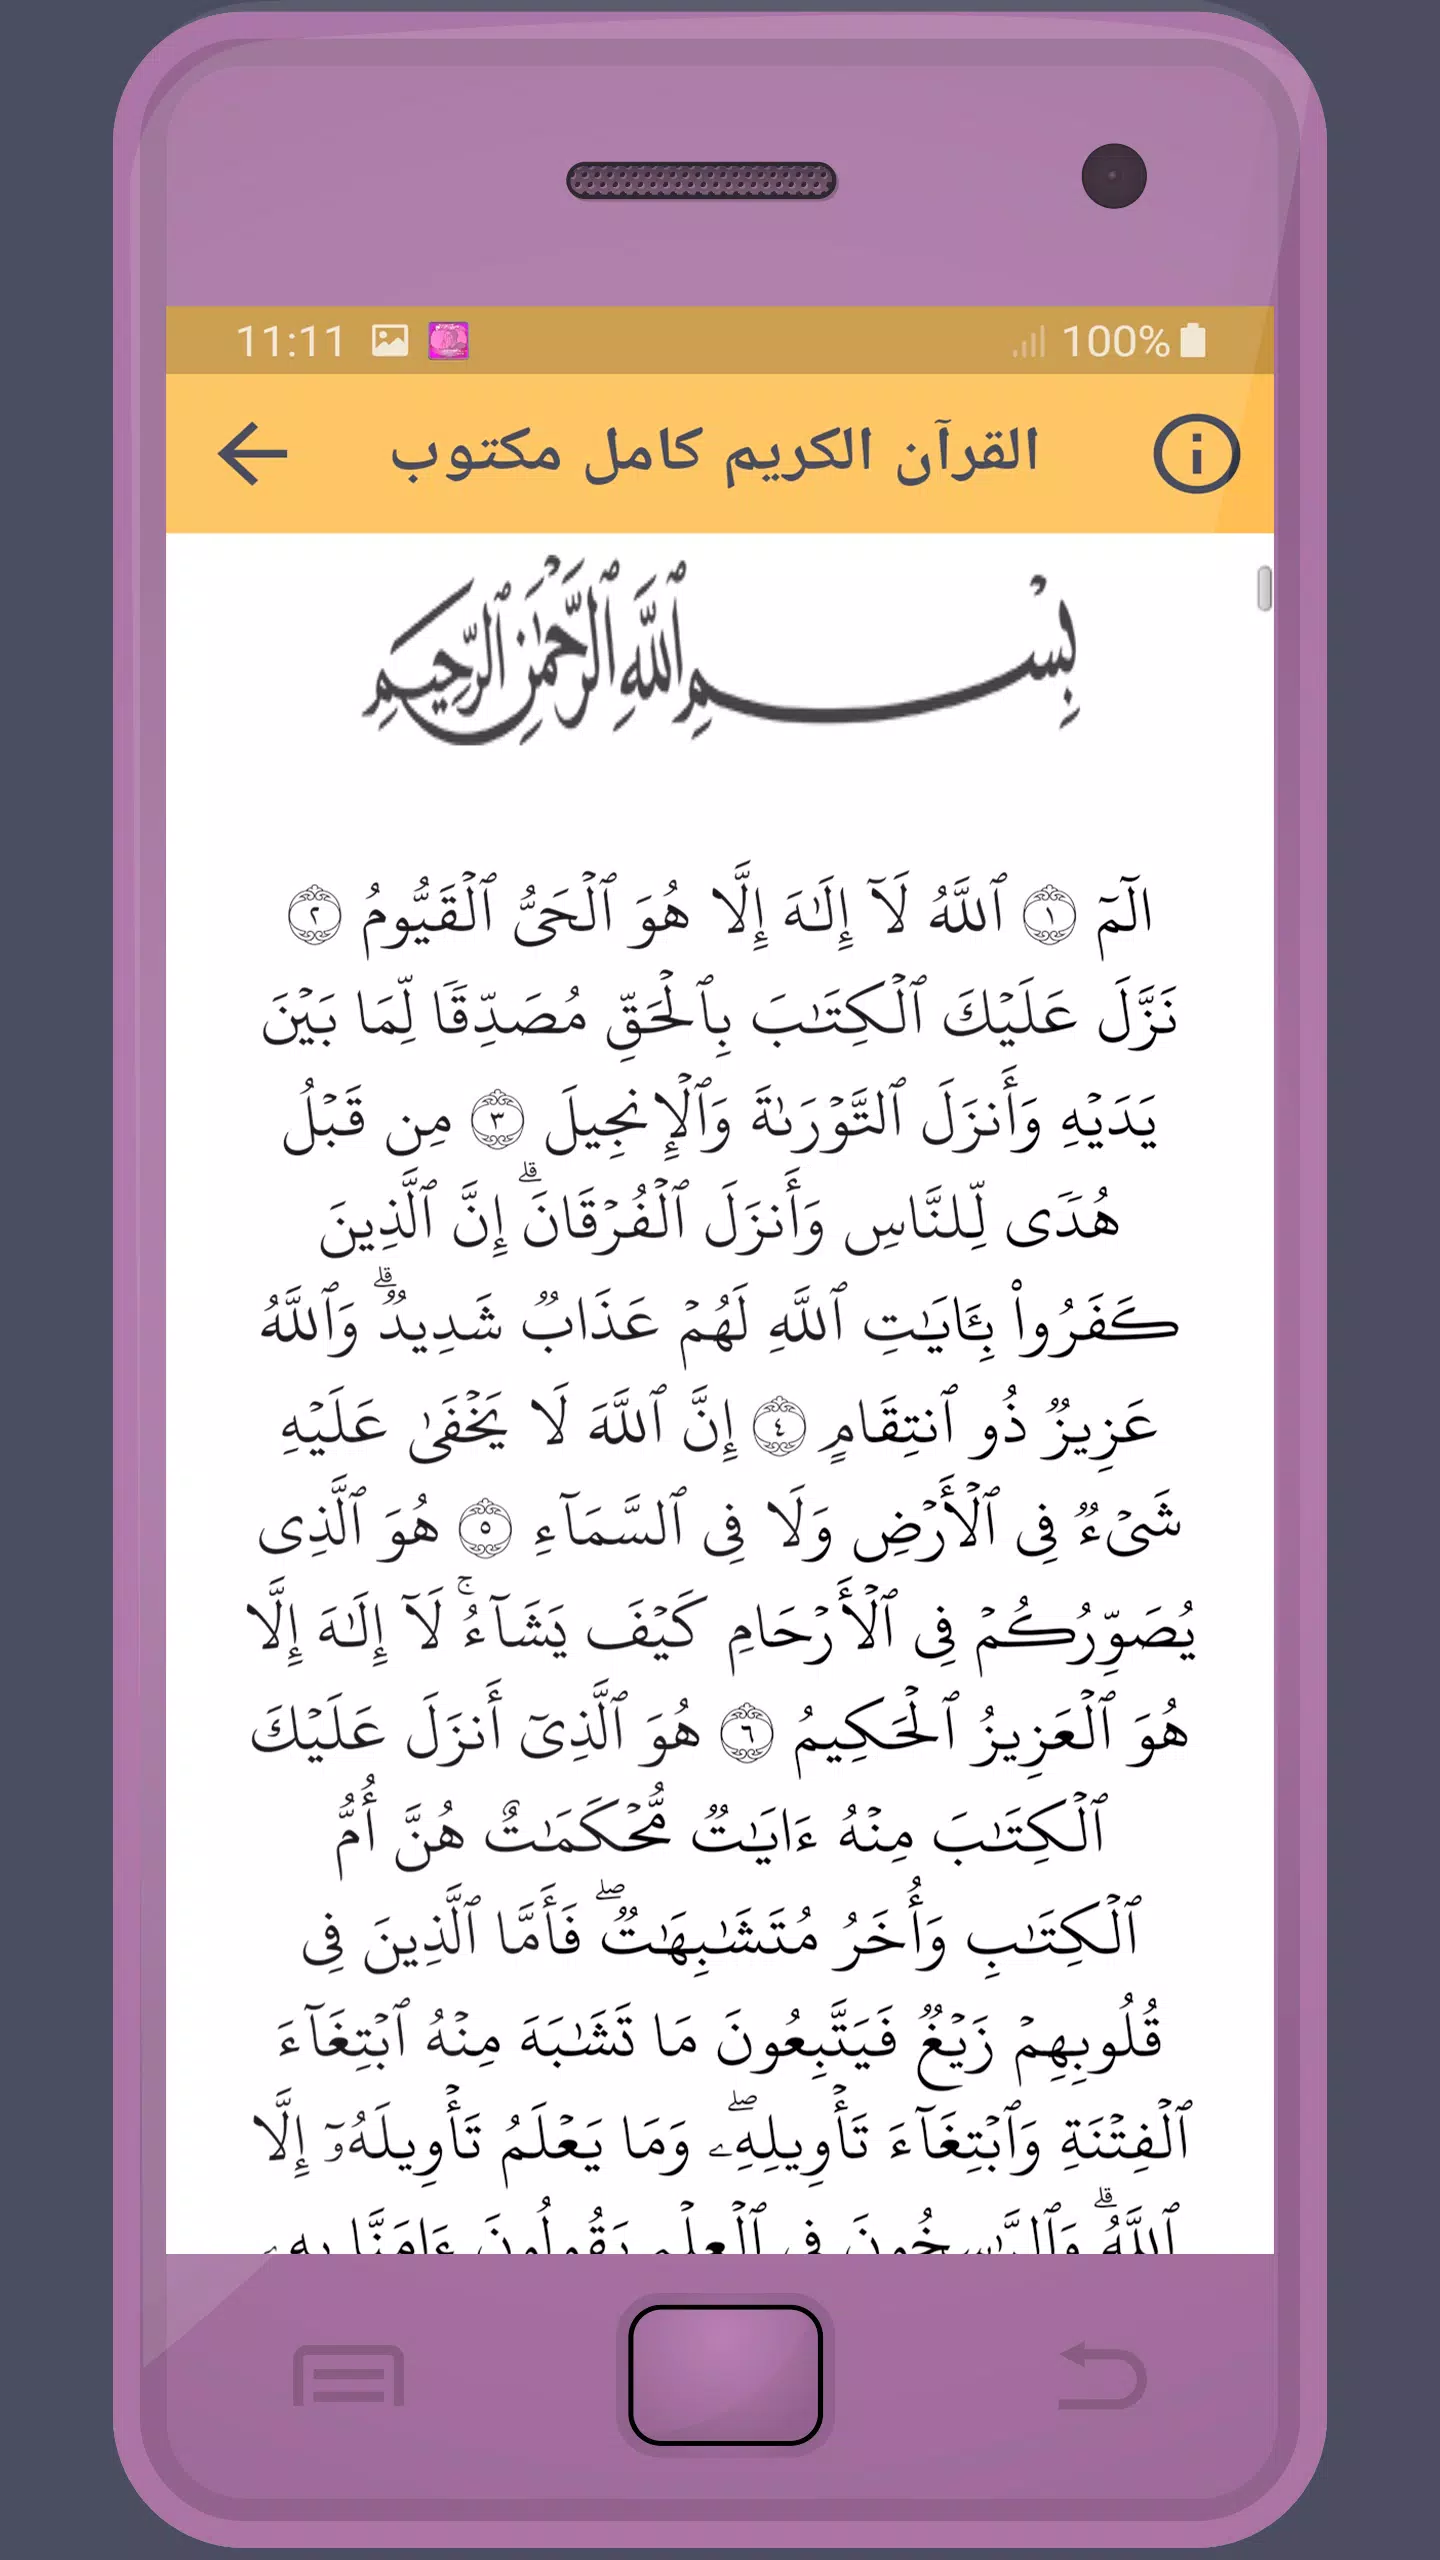 11:11 100%
القرآن الكريم كامل مكتوب
بِسْمِ ٱللَّهِ ٱلرَّحْمَٰنِ ٱلرَّحِيمِ
الٓمٓ ١ ٱللَّهُ لَآ إِلَٰهَ إِلَّا هُوَ ٱلْحَىُّ ٱلْقَيُّومُ ٢
نَزَّلَ عَلَيْكَ ٱلْكِتَٰبَ بِٱلْحَقِّ مُصَدِّقًا لِّمَا بَيْنَ
يَدَيْهِ وَأَنزَلَ ٱلتَّوْرَىٰةَ وَٱلْإِنجِيلَ ٣ مِن قَبْلُ
هُدًى لِّلنَّاسِ وَأَنزَلَ ٱلْفُرْقَانَ ۗ إِنَّ ٱلَّذِينَ
كَفَرُوا۟ بِـَٔايَٰتِ ٱللَّهِ لَهُمْ عَذَابٌ شَدِيدٌ ۗ وَٱللَّهُ
عَزِيزٌ ذُو ٱنتِقَامٍ ٤ إِنَّ ٱللَّهَ لَا يَخْفَىٰ عَلَيْهِ
شَىْءٌ فِى ٱلْأَرْضِ وَلَا فِى ٱلسَّمَآءِ ٥ هُوَ ٱلَّذِى
يُصَوِّرُكُمْ فِى ٱلْأَرْحَامِ كَيْفَ يَشَآءُ ۚ لَآ إِلَٰهَ إِلَّا
هُوَ ٱلْعَزِيزُ ٱلْحَكِيمُ ٦ هُوَ ٱلَّذِىٓ أَنزَلَ عَلَيْكَ
ٱلْكِتَٰبَ مِنْهُ ءَايَٰتٌ مُّحْكَمَٰتٌ هُنَّ أُمُّ
ٱلْكِتَٰبِ وَأُخَرُ مُتَشَٰبِهَٰتٌ ۖ فَأَمَّا ٱلَّذِينَ فِى
قُلُوبِهِمْ زَيْغٌ فَيَتَّبِعُونَ مَا تَشَٰبَهَ مِنْهُ ٱبْتِغَآءَ
ٱلْفِتْنَةِ وَٱبْتِغَآءَ تَأْوِيلِهِۦ ۖ وَمَا يَعْلَمُ تَأْوِيلَهُۥٓ إِلَّا
ٱللَّهُ ۗ وَٱلرَّٰسِخُونَ فِى ٱلْعِلْمِ يَقُولُونَ ءَامَنَّا بِهِۦ